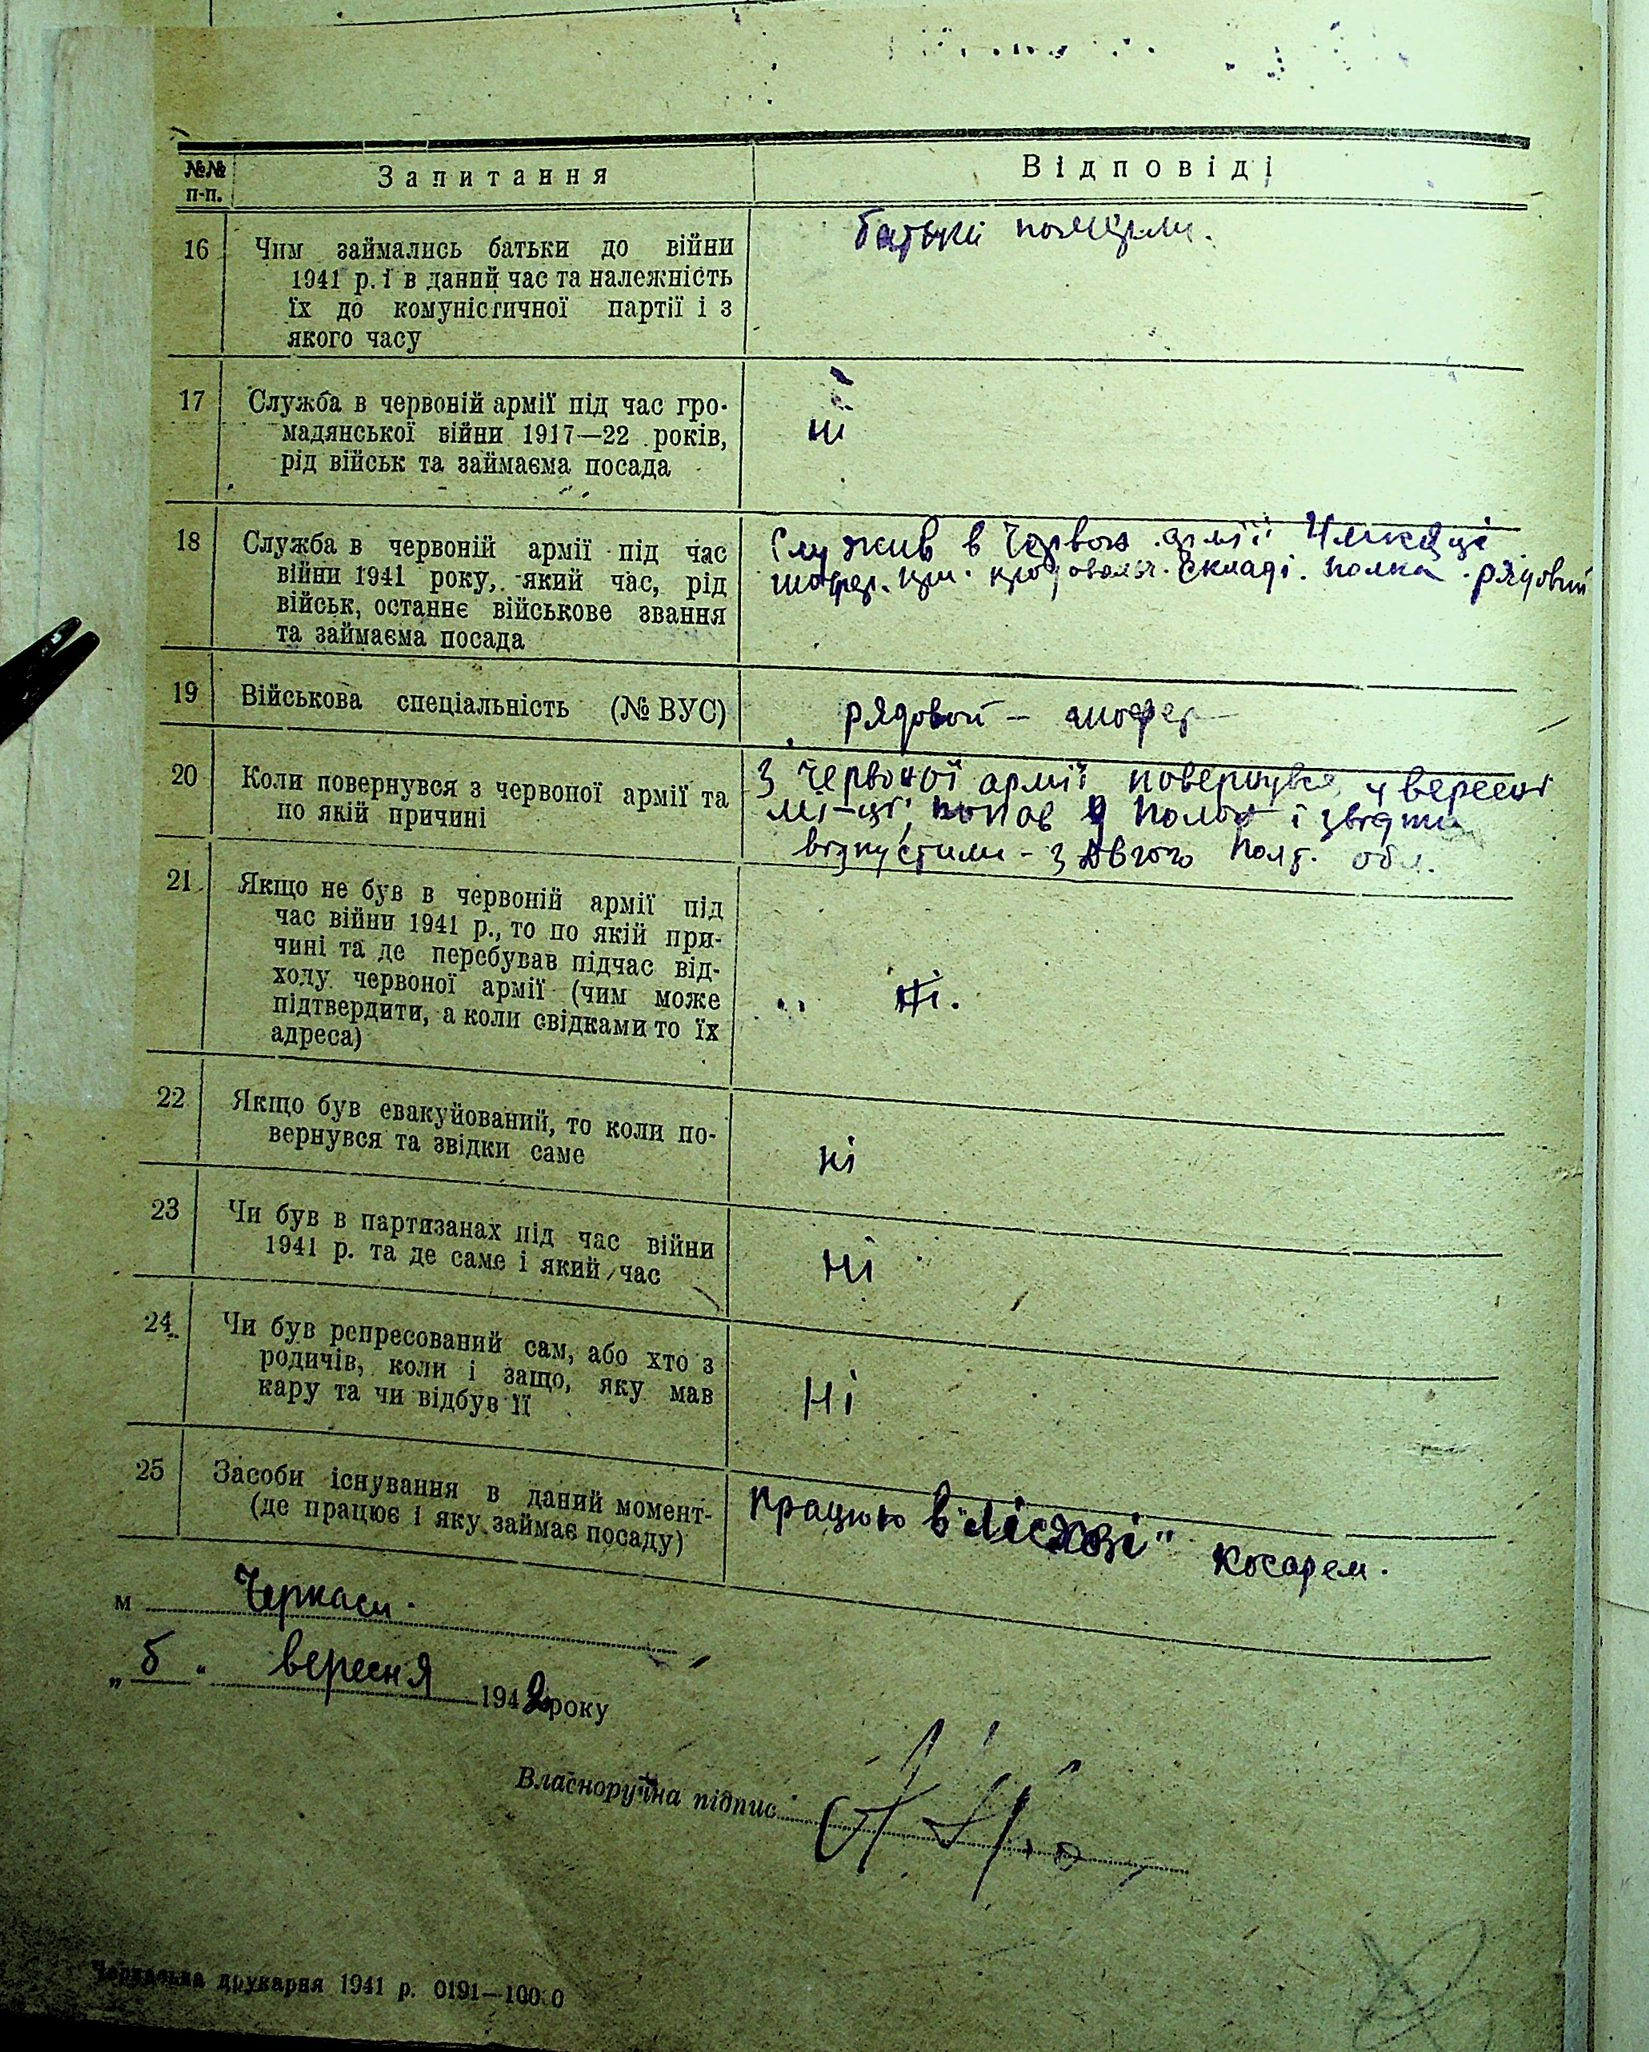 №№ п-п. Запитання Відповіді
16 Чим займались батьки до війни
1941 р. і в даний час та належність
їх до комуністичної партії і з
якого часу
батьки померли.
17 Служба в червоній армії під час гро-
мадянської війни 1917—22 років,
рід військ та займаєма посада
ні
18 Служба в червоній армії під час
війни 1941 року, який час, рід
військ, останнє військове звання
та займаєма посада
Служив в Червон. армії
шофер. при. продовольч. складі. полка. рядовий
19 Військова спеціальність (№ ВУС)
рядовой — шофер
20 Коли повернувся з червоної армії та
по якій причині
З Червоної армії повернувся у вересні
мі-ці, попав у полон і звідти
відпустили - з Полт. обл.
21 Якщо не був в червоній армії під
час війни 1941 р., то по якій при-
чині та де перебував підчас від-
ходу червоної армії (чим може
підтвердити, а коли свідками то їх
адреса)
ні.
22 Якщо був евакуйований, то коли по-
вернувся та звідки саме
ні
23 Чи був в партизанах під час війни
1941 р. та де саме і який час
ні
24 Чи був репресований сам, або хто з
родичів, коли і защо, яку мав
кару та чи відбув її
Ні
25 Засоби існування в даний момент-
(де працює і яку займає посаду)
Працюю в "Лісхозі" косарем.
м Черкаси.
„5" вересня 1942 року
Власноручна підпис
Черкаська друкарня 1941 р. 0191—1000